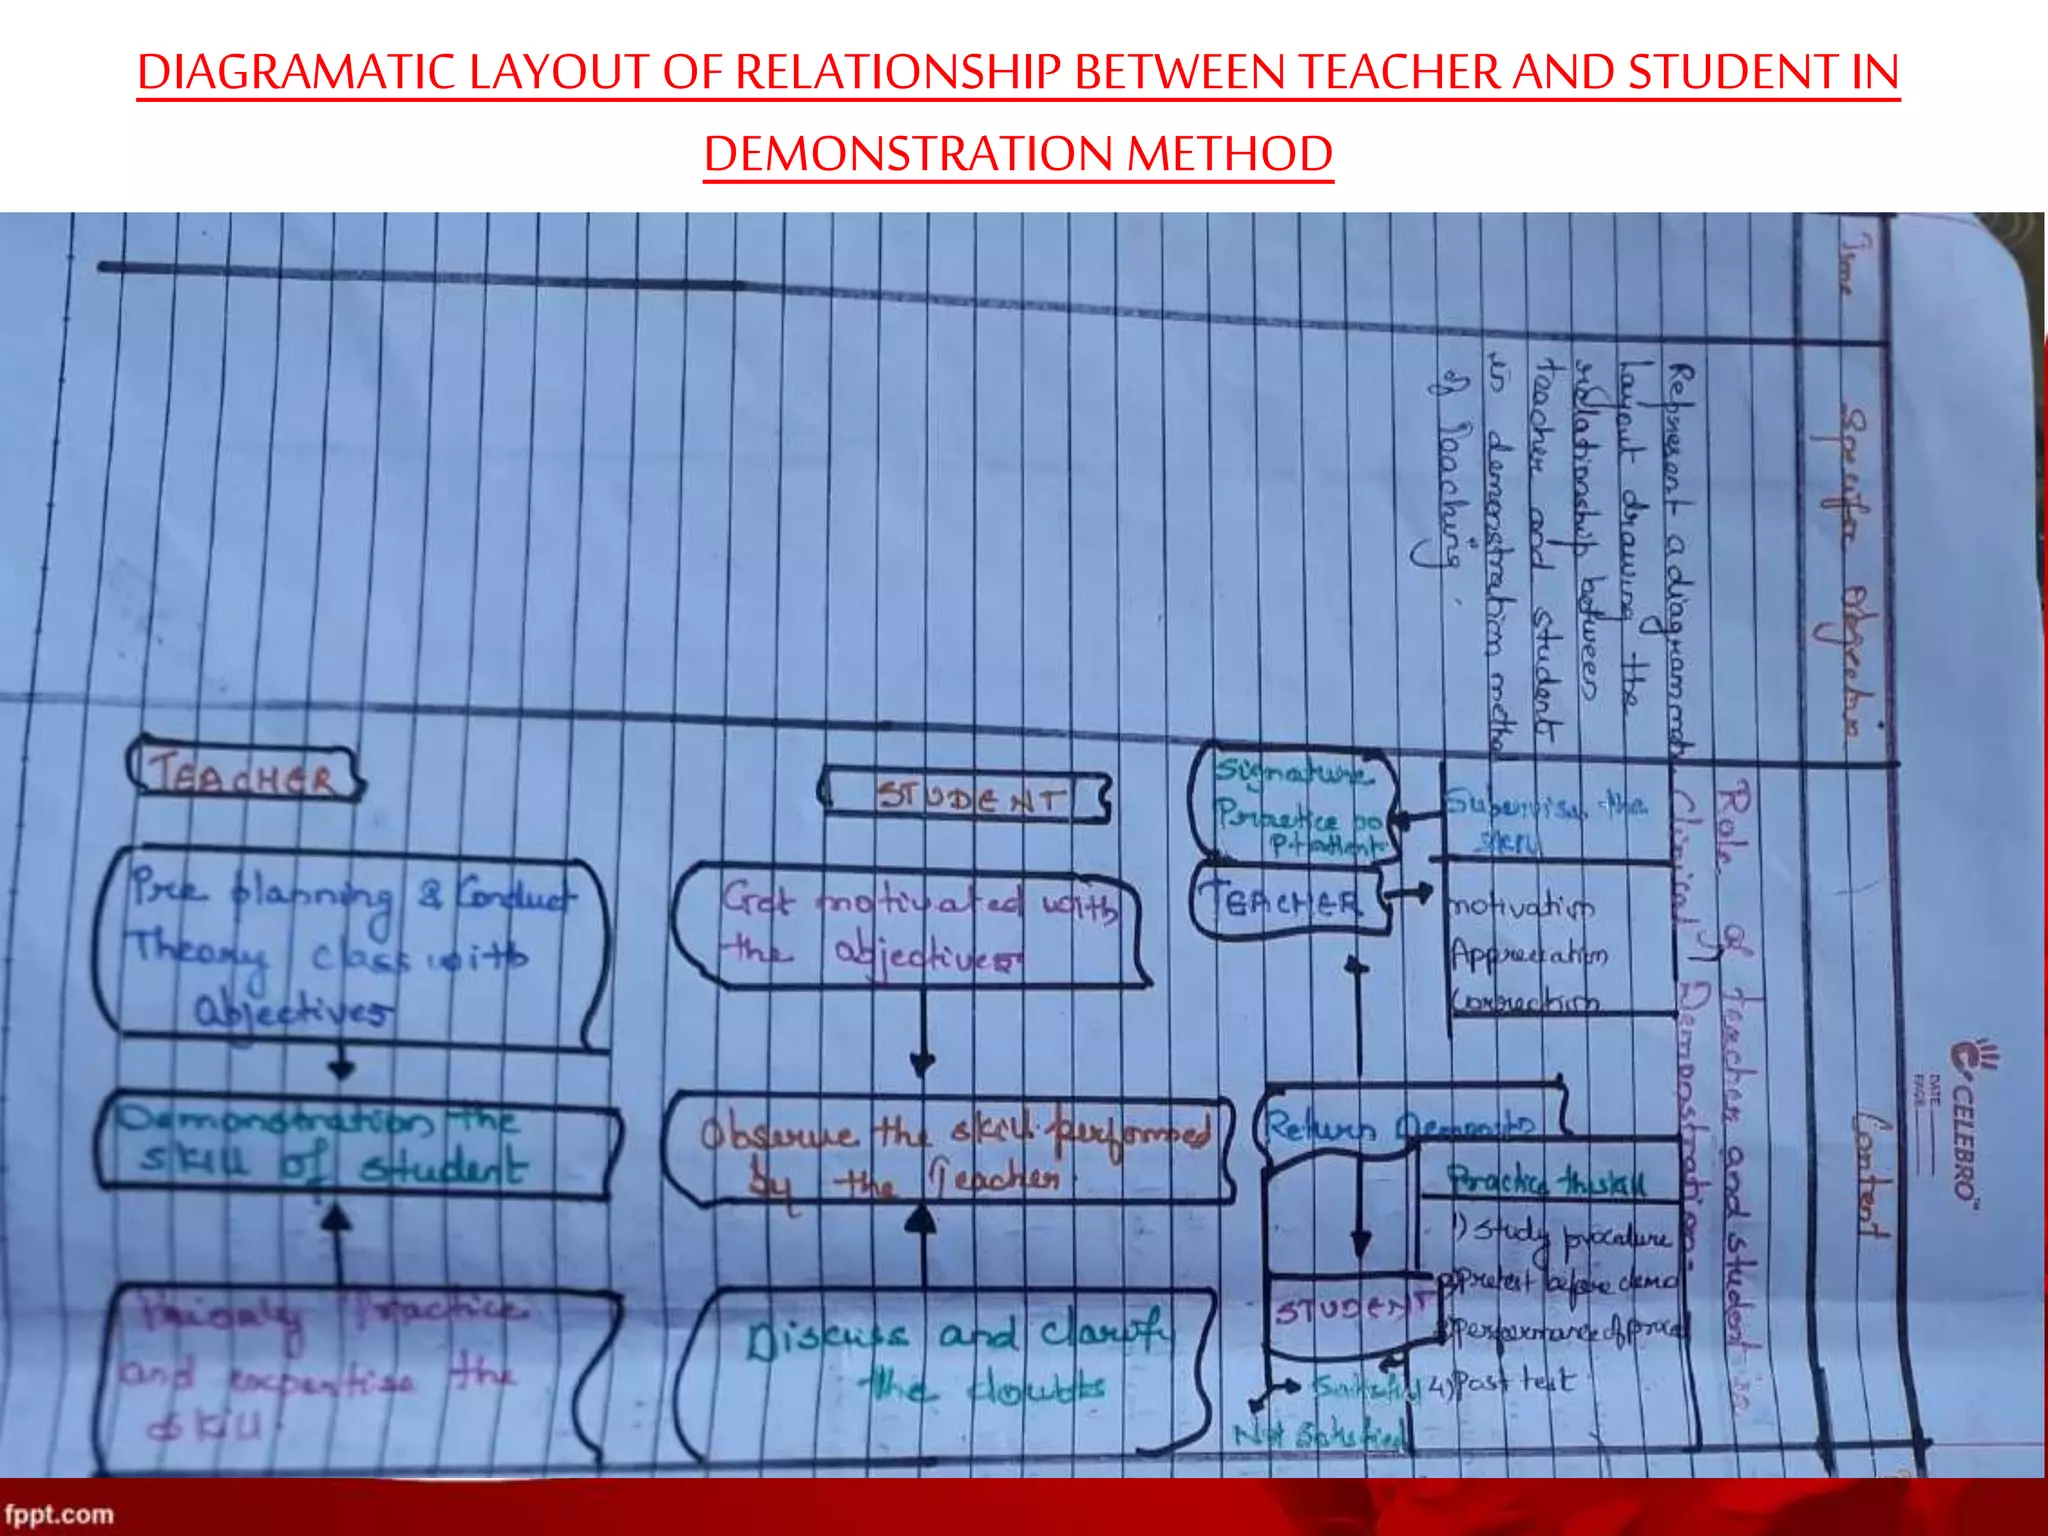 DIAGRAMATIC LAYOUT OF RELATIONSHIP BETWEEN TEACHER AND STUDENT IN
DEMONSTRATION METHOD
Time
Specific Objective
Content
CELEBRO™
DATE
PAGE
Represent a diagrammatic
layout drawing the
relationship between
teacher and student
in demonstration method
of Teaching.
Role of Teacher and student in
Clinical Demonstration.
TEACHER
Pre planning & Conduct
Theory class with
objectives
Demonstration the
skill of student
Practice
and expertise the
skill.
STUDENT
Get motivated with
the objectives
Observe the skill performed
by the Teacher.
Discuss and clarify
the doubts
Signature
Practice on
TEACHER
Supervise the
skill
motivation
Appreciation
Correction
Return
STUDENT
Practice the skill
1) Study procedure
2) Pretest before demo
3) Performance of proced
4) Post test
Not Satisfied
fppt.com